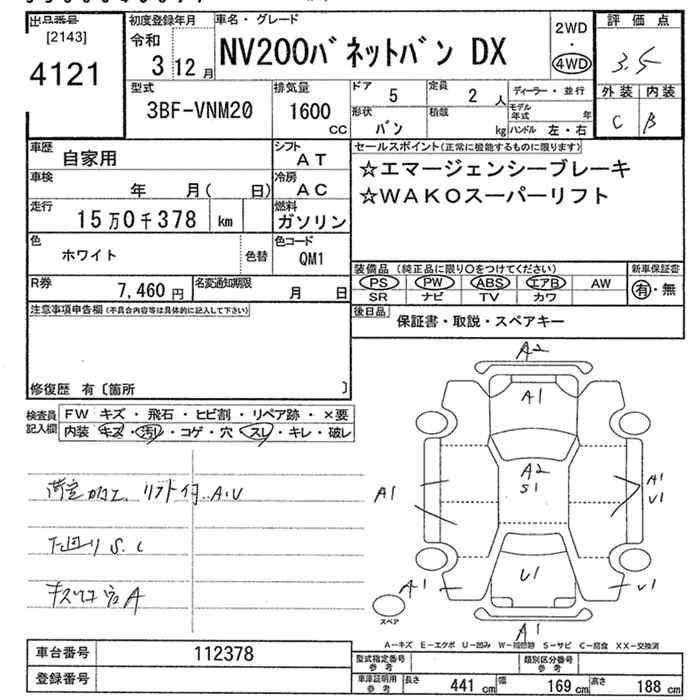 出品番号
[2143]
4121
初度登録年月
令和
3 12月
車名・グレード
NV200バネットバン DX
2WD
・
4WD
評価点
3.5
外装 内装
C B
型式
3BF-VNM20
排気量
1600
CC
ドア 5
定員 2 人
ディーラー・並行
形状 バン
積載 kg
モデル年式 年
ハンドル 左・右
車歴 自家用
シフト AT
車検 年 月( 日)
冷房 AC
走行 15万0千378 km
燃料 ガソリン
色 ホワイト 色替
色コード QM1
R券 7,460円
名変通知期限 月 日
セールスポイント(正常に機能するものに限ります)
☆エマージェンシーブレーキ
☆WAKOスーパーリフト
装備品 (純正品に限り○をつけてください)
PS PW ABS エアB AW
SR ナビ TV カワ
新車保証書
有・無
後日品 保証書・取説・スペアキー
注意事項申告欄(不具合内容等は具体的に記入して下さい)
修復歴 有〔箇所 〕
検査員記入欄
FW キズ・飛石・ヒビ割・リペア跡・×要
内装 キズ・汚レ・コゲ・穴・スレ・キレ・破レ
荷室加工、リフト付 A.U
下回り S.C
A
A2
A1
A2
S1
A1
A1
U1
U1
A1
U1
A1
スペア
A-キズ E-エクボ U-凹み W-補修跡 S-サビ C-腐食 XX-交換済
車台番号 112378
登録番号
型式指定番号 参考
類別区分番号 参考
車庫証明用 参考
長さ 441 cm 幅 169 cm 高さ 188 cm